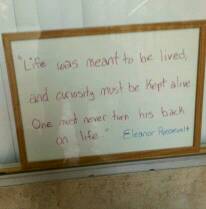 "Life was meant to be lived,
and curiosity must be kept alive
One must never turn his back
on life." Eleanor Roosevelt